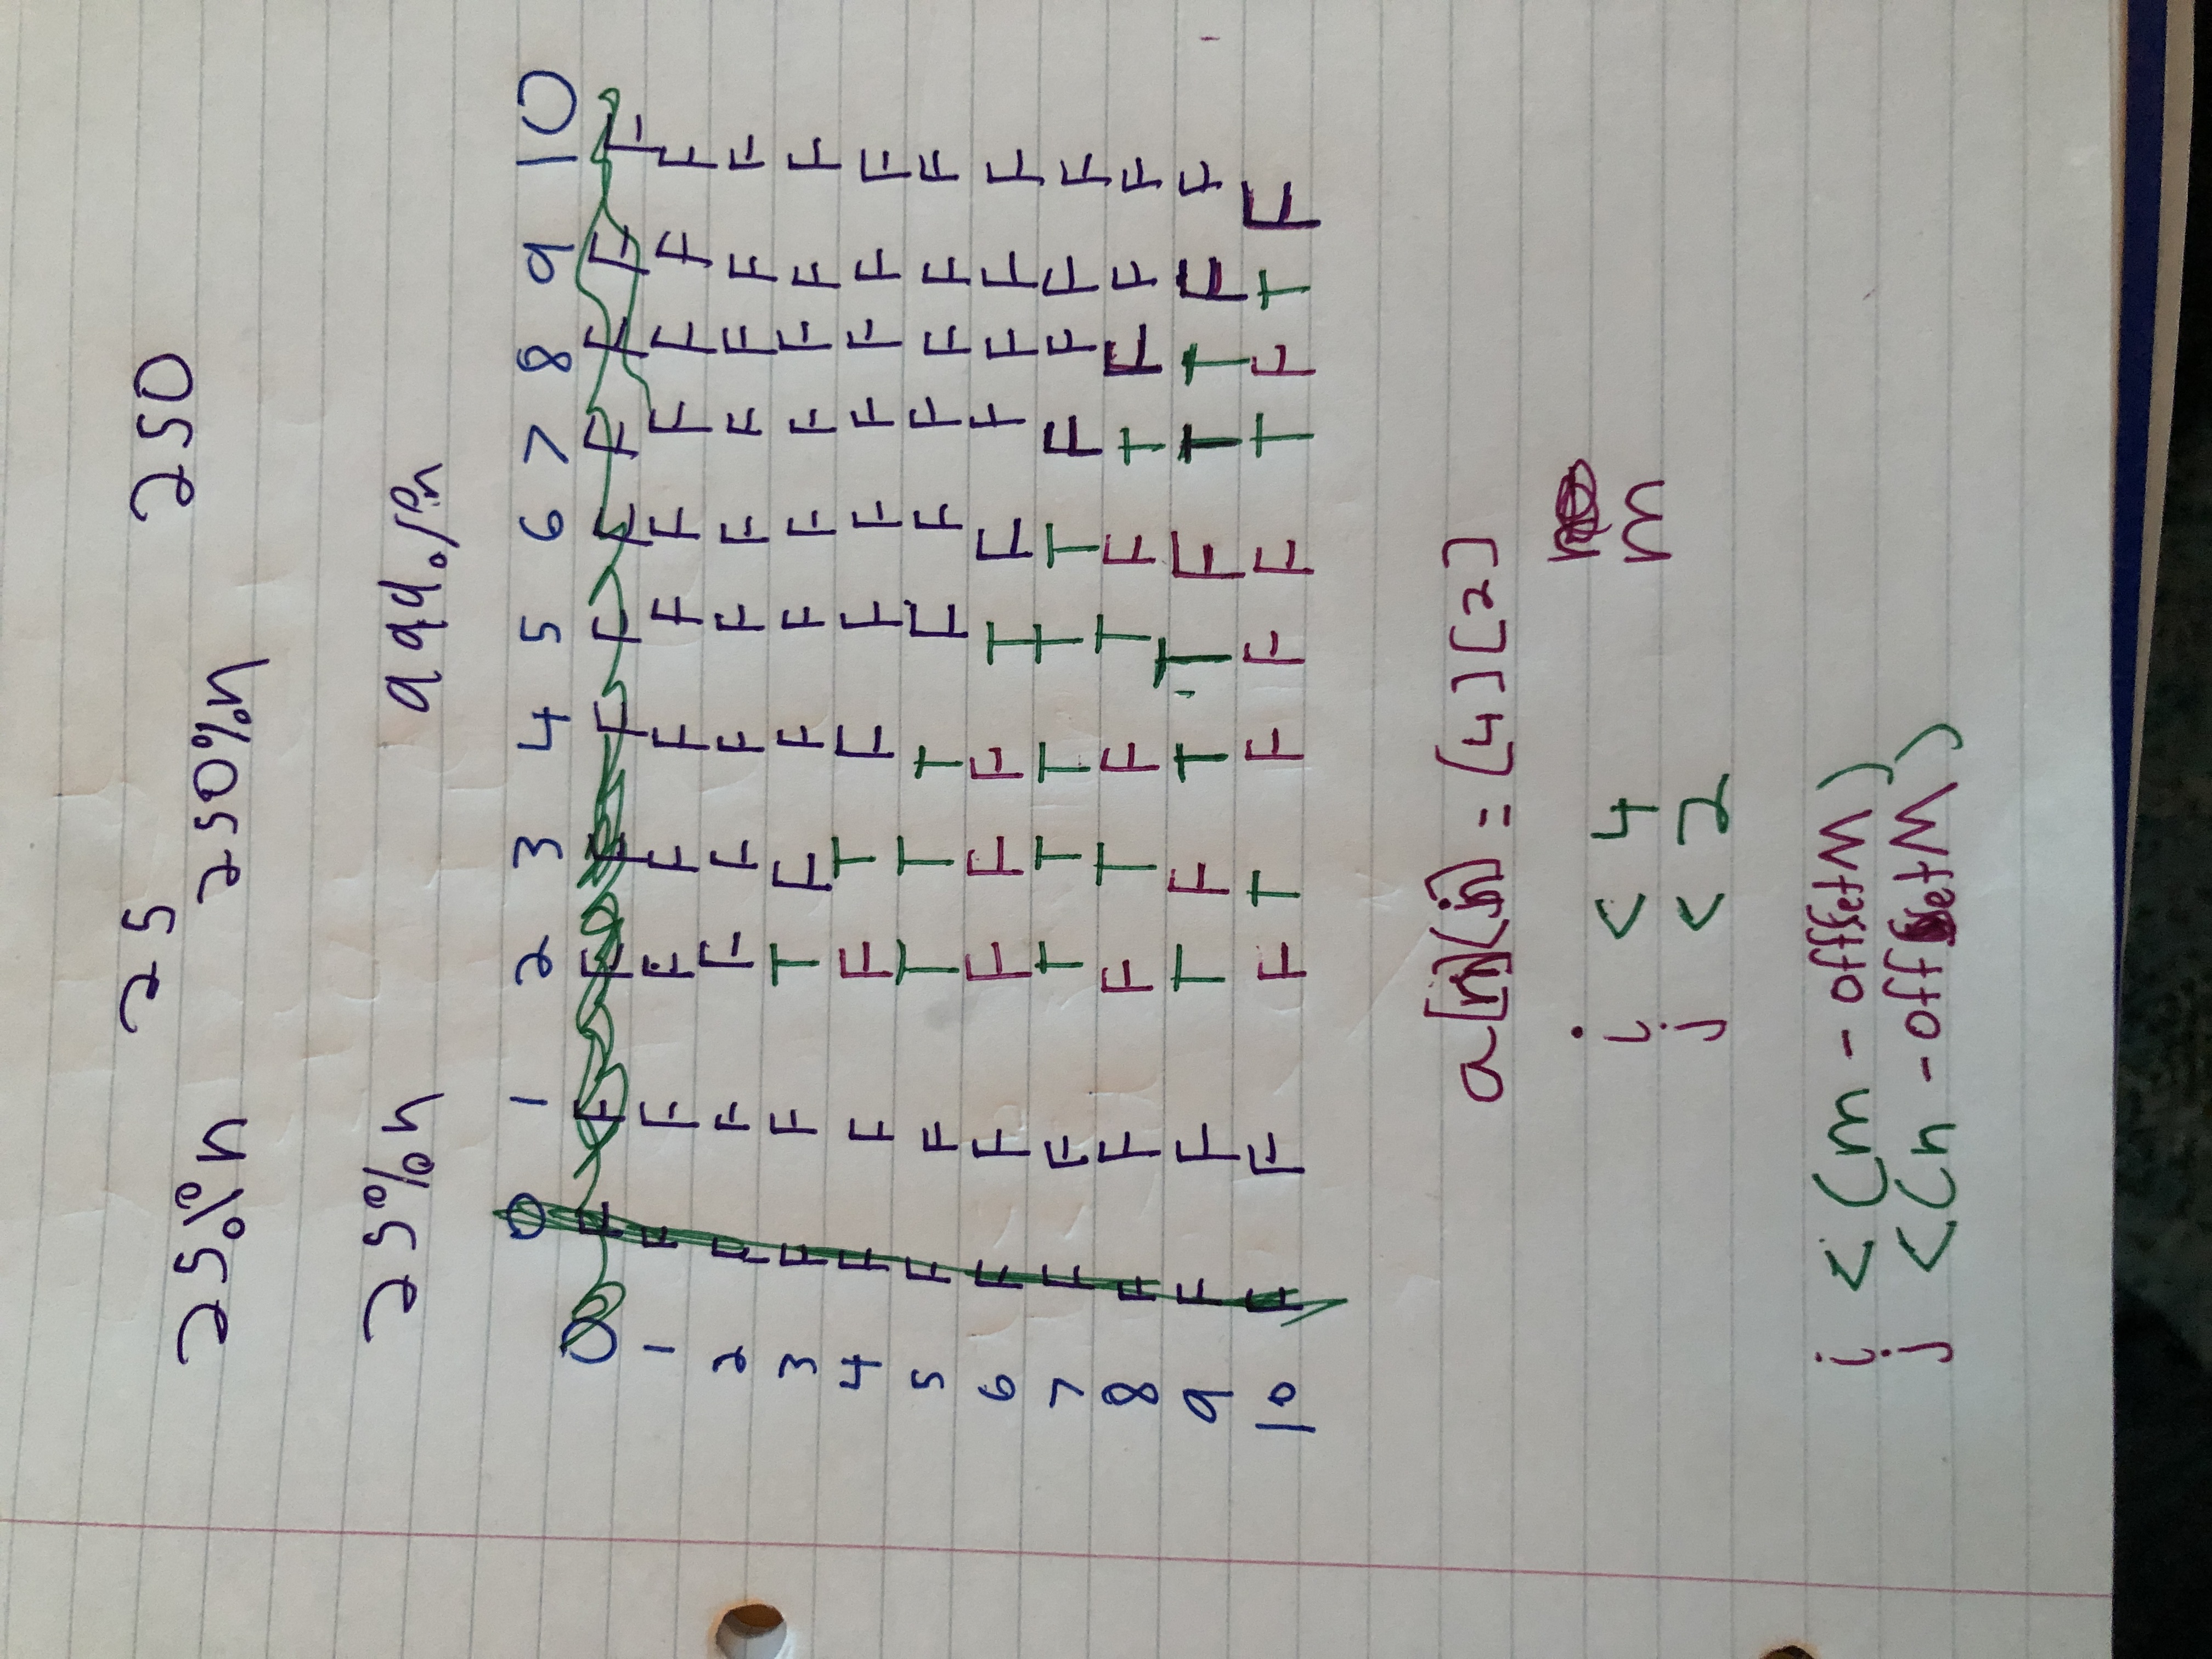 25 250
25%n 250%n
25%n 999%n
0 1 2 3 4 5 6 7 8 9 10
0 F F F F F F F F F F F
1 F F F F F F F F F F F
2 F F F F F F F F F F F
3 F F T F F F F F F F F
4 F F F T F F F F F F F
5 F F T T T F F F F F F
6 F F F F F T F F F F F
7 F F T T T T T F F F F
8 F F F T F T F T F F F
9 F F T F T T F T T F F
10 F F F T F F F T F T F
a[ ][ ] = [4][2]
i < 4
m
j < 2
i < (m - offsetM)
j < (n - offsetM)